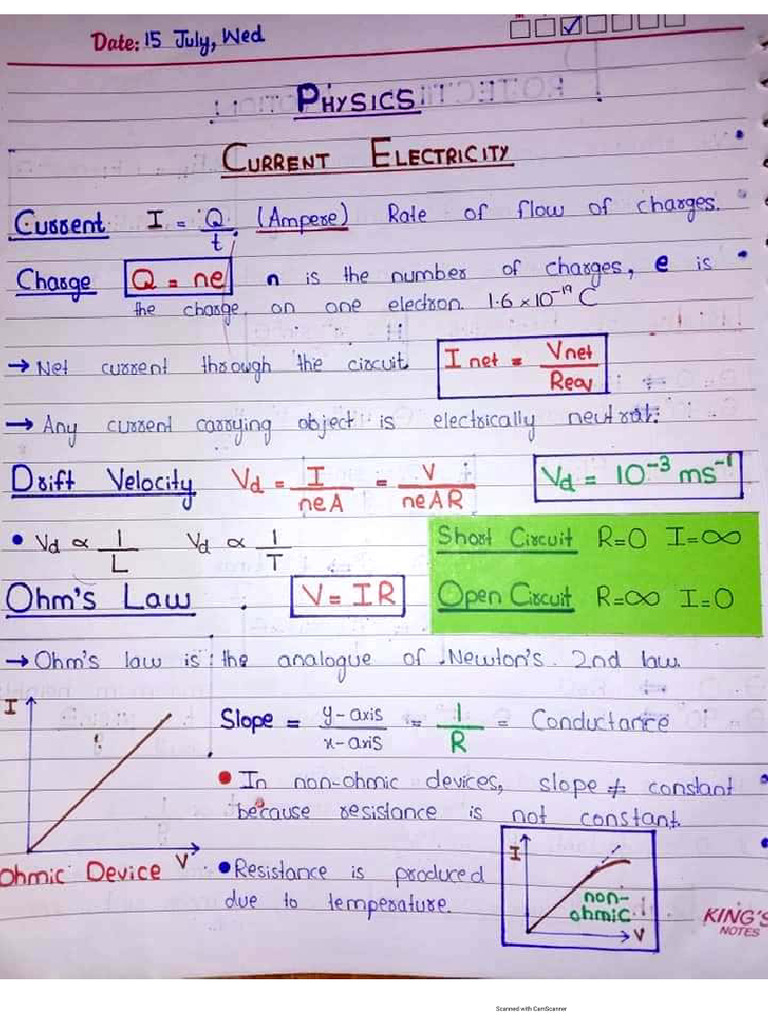 Date: 15 July, Wed
PHYSICS
CURRENT ELECTRICITY
Current I = Q/t (Ampere) Rate of flow of charges.
Charge Q = ne n is the number of charges, e is
the charge on one electron. 1.6 × 10⁻¹⁹ C
→ Net current through the circuit I net = Vnet/Reqv
→ Any current carrying object is electrically neutral.
Drift Velocity Vd = I/neA = V/neAR Vd = 10⁻³ ms⁻¹
• Vd ∝ 1/L Vd ∝ 1/T Short Circuit R=0 I=∞
Ohm's Law V = IR Open Circuit R=∞ I=0
→ Ohm's law is the analogue of Newton's 2nd law.
I
Slope = y-axis/x-axis = 1/R = Conductance
• In non-ohmic devices, slope ≠ constant
because resistance is not constant.
Ohmic Device V
• Resistance is produced
due to temperature.
I
non-
ohmic
V
KING'S
NOTES
Scanned with CamScanner